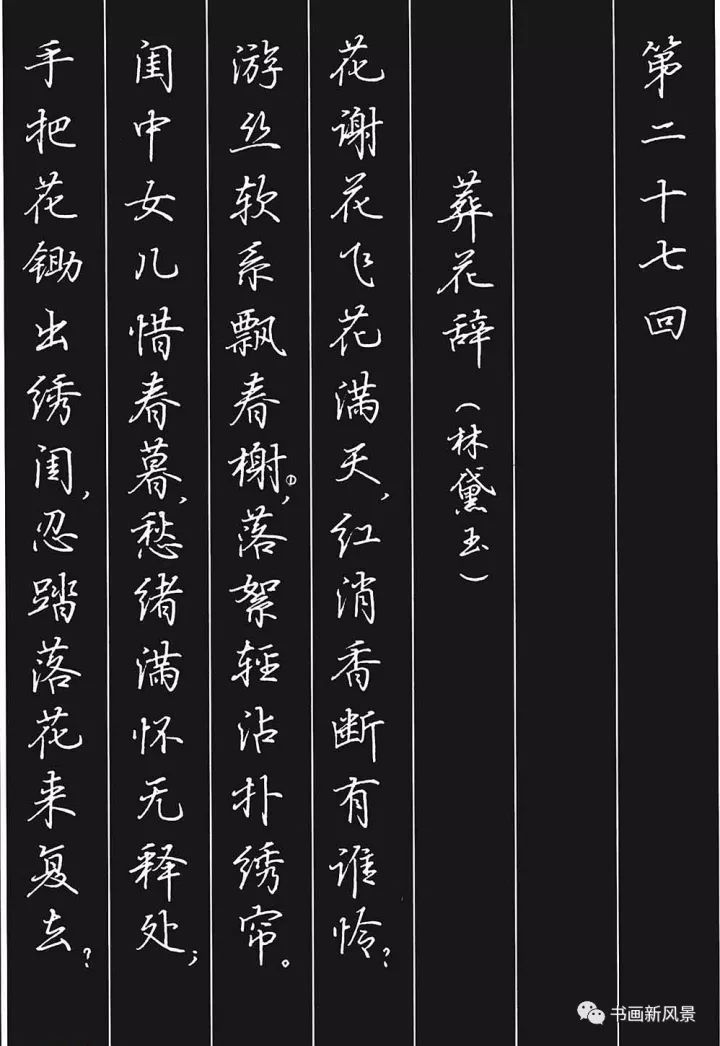 第二十七回
葬花辞（林黛玉）
花谢花飞花满天，红消香断有谁怜？
游丝软系飘春榭①，落絮轻沾扑绣帘。
闺中女儿惜春暮，愁绪满怀无释处；
手把花锄出绣闺，忍踏落花来复去？
书画新风景